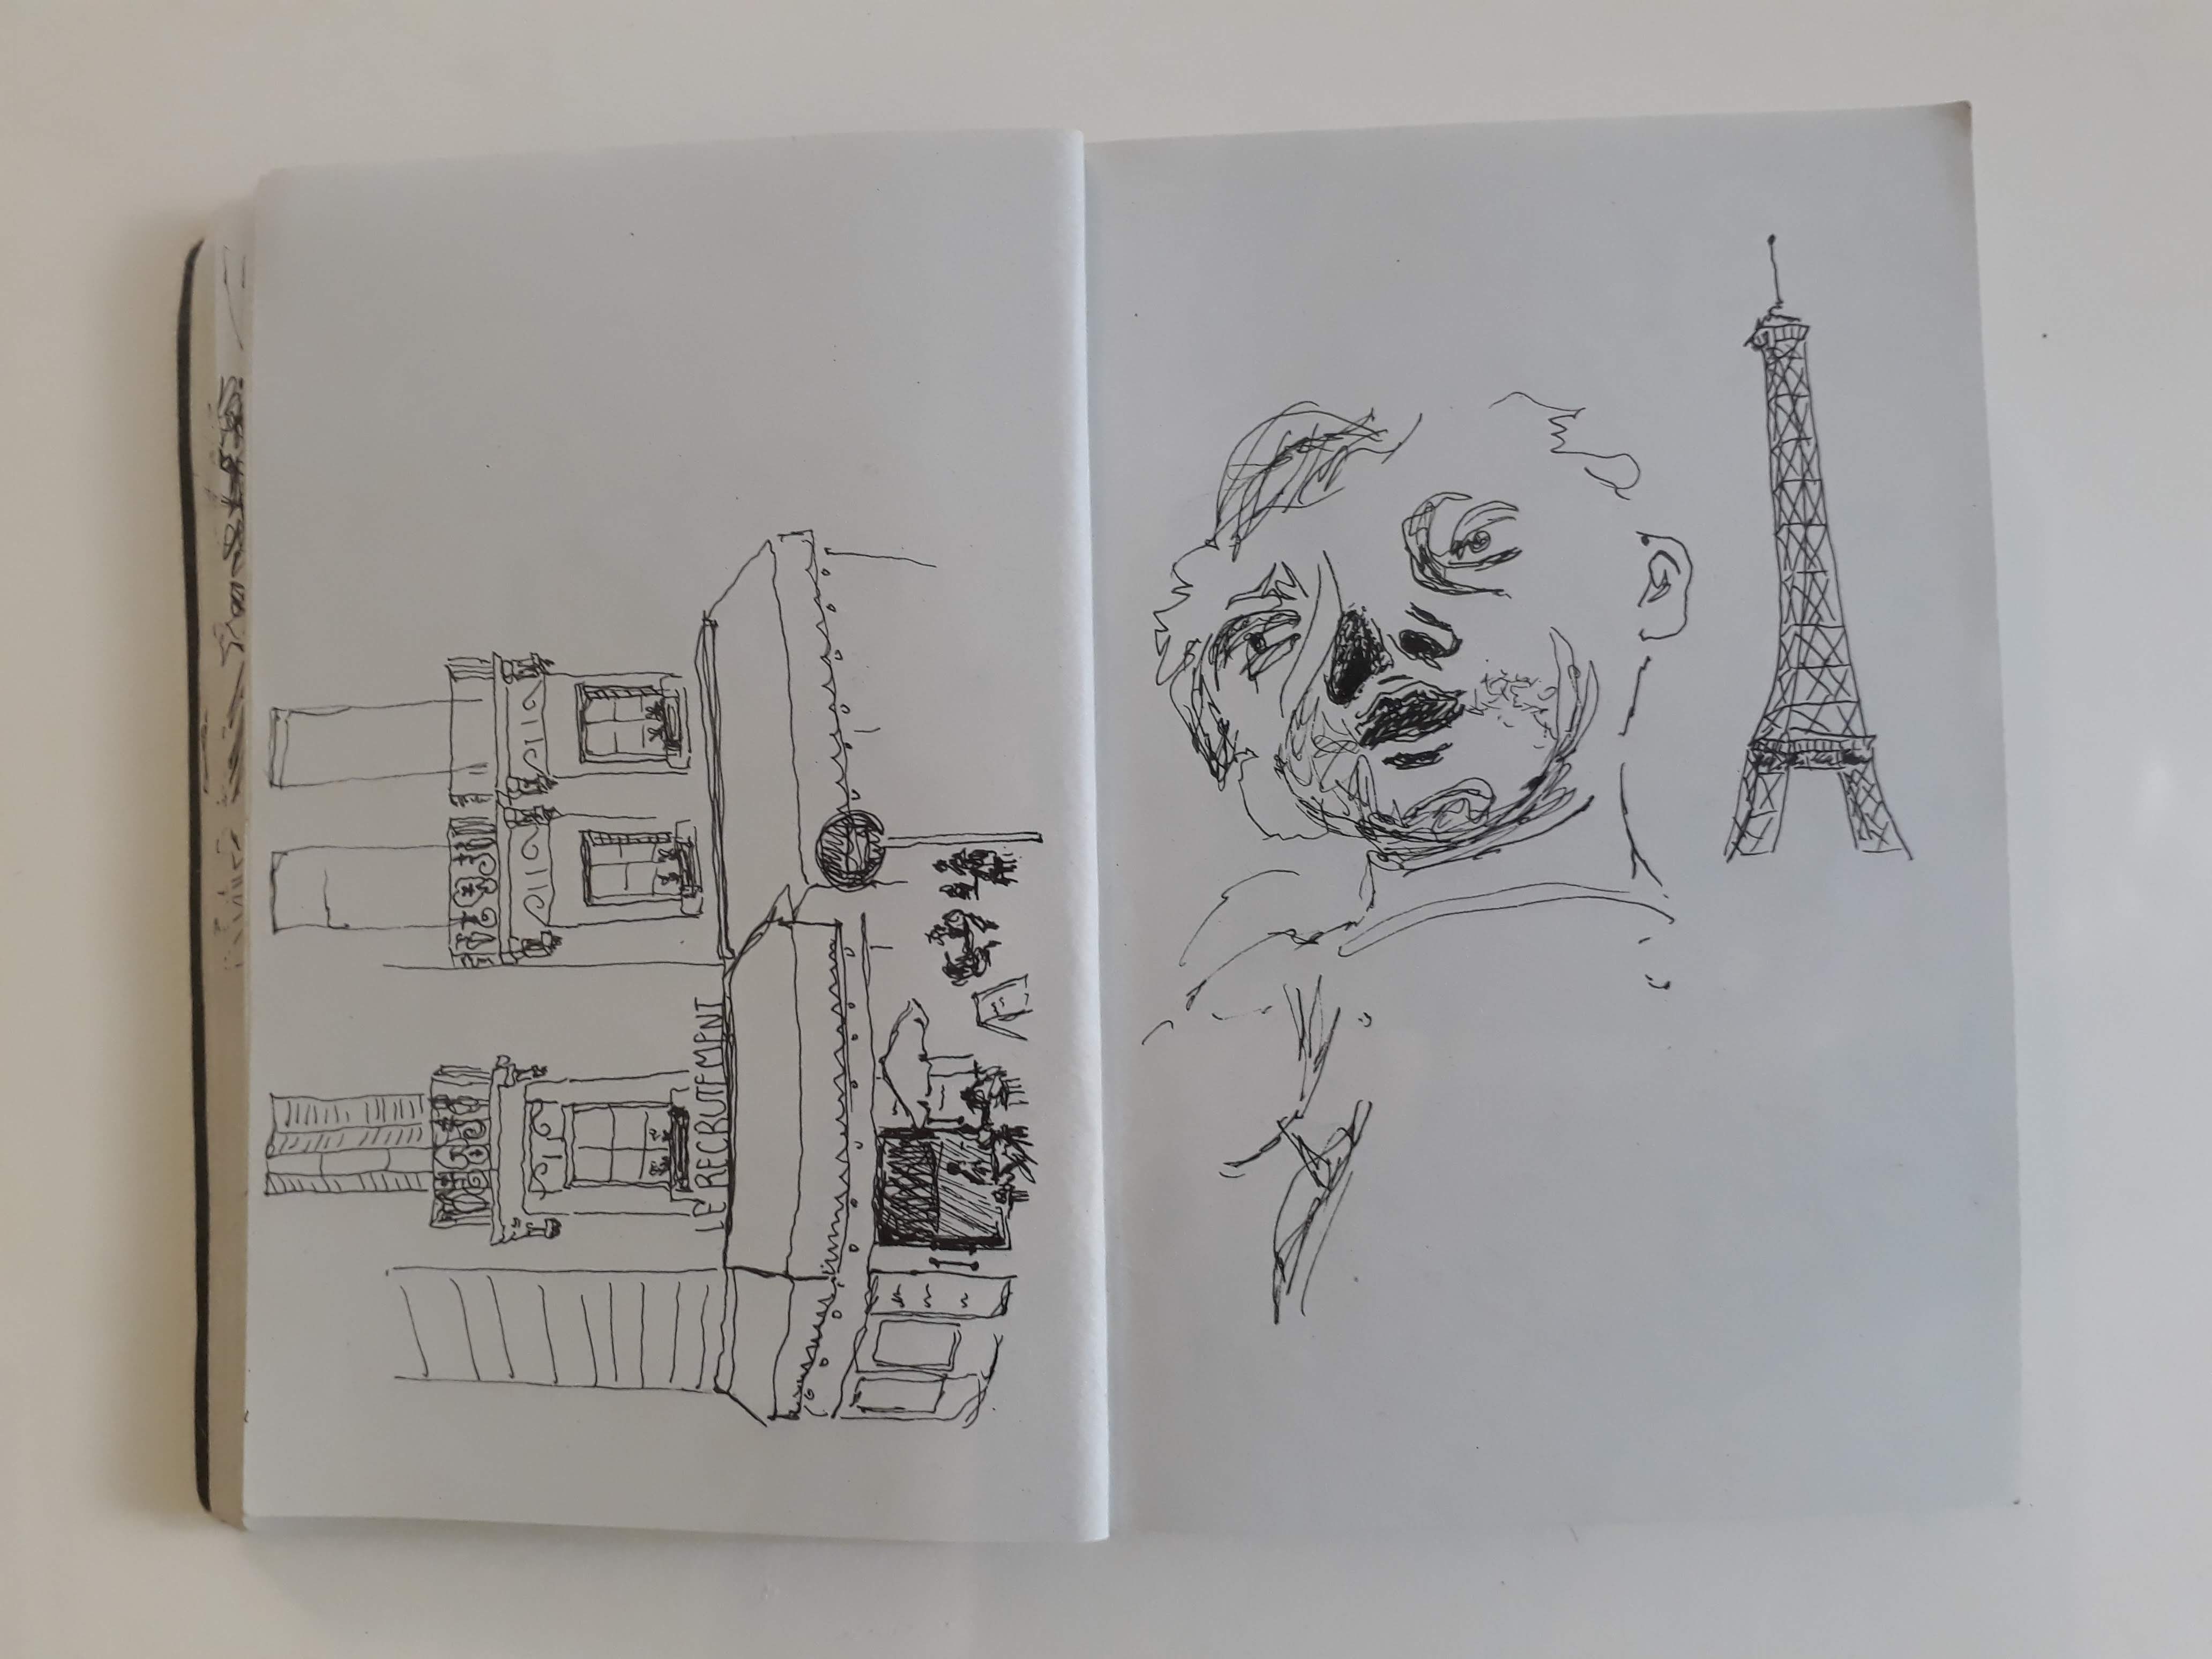 LE RECRUTEMENT